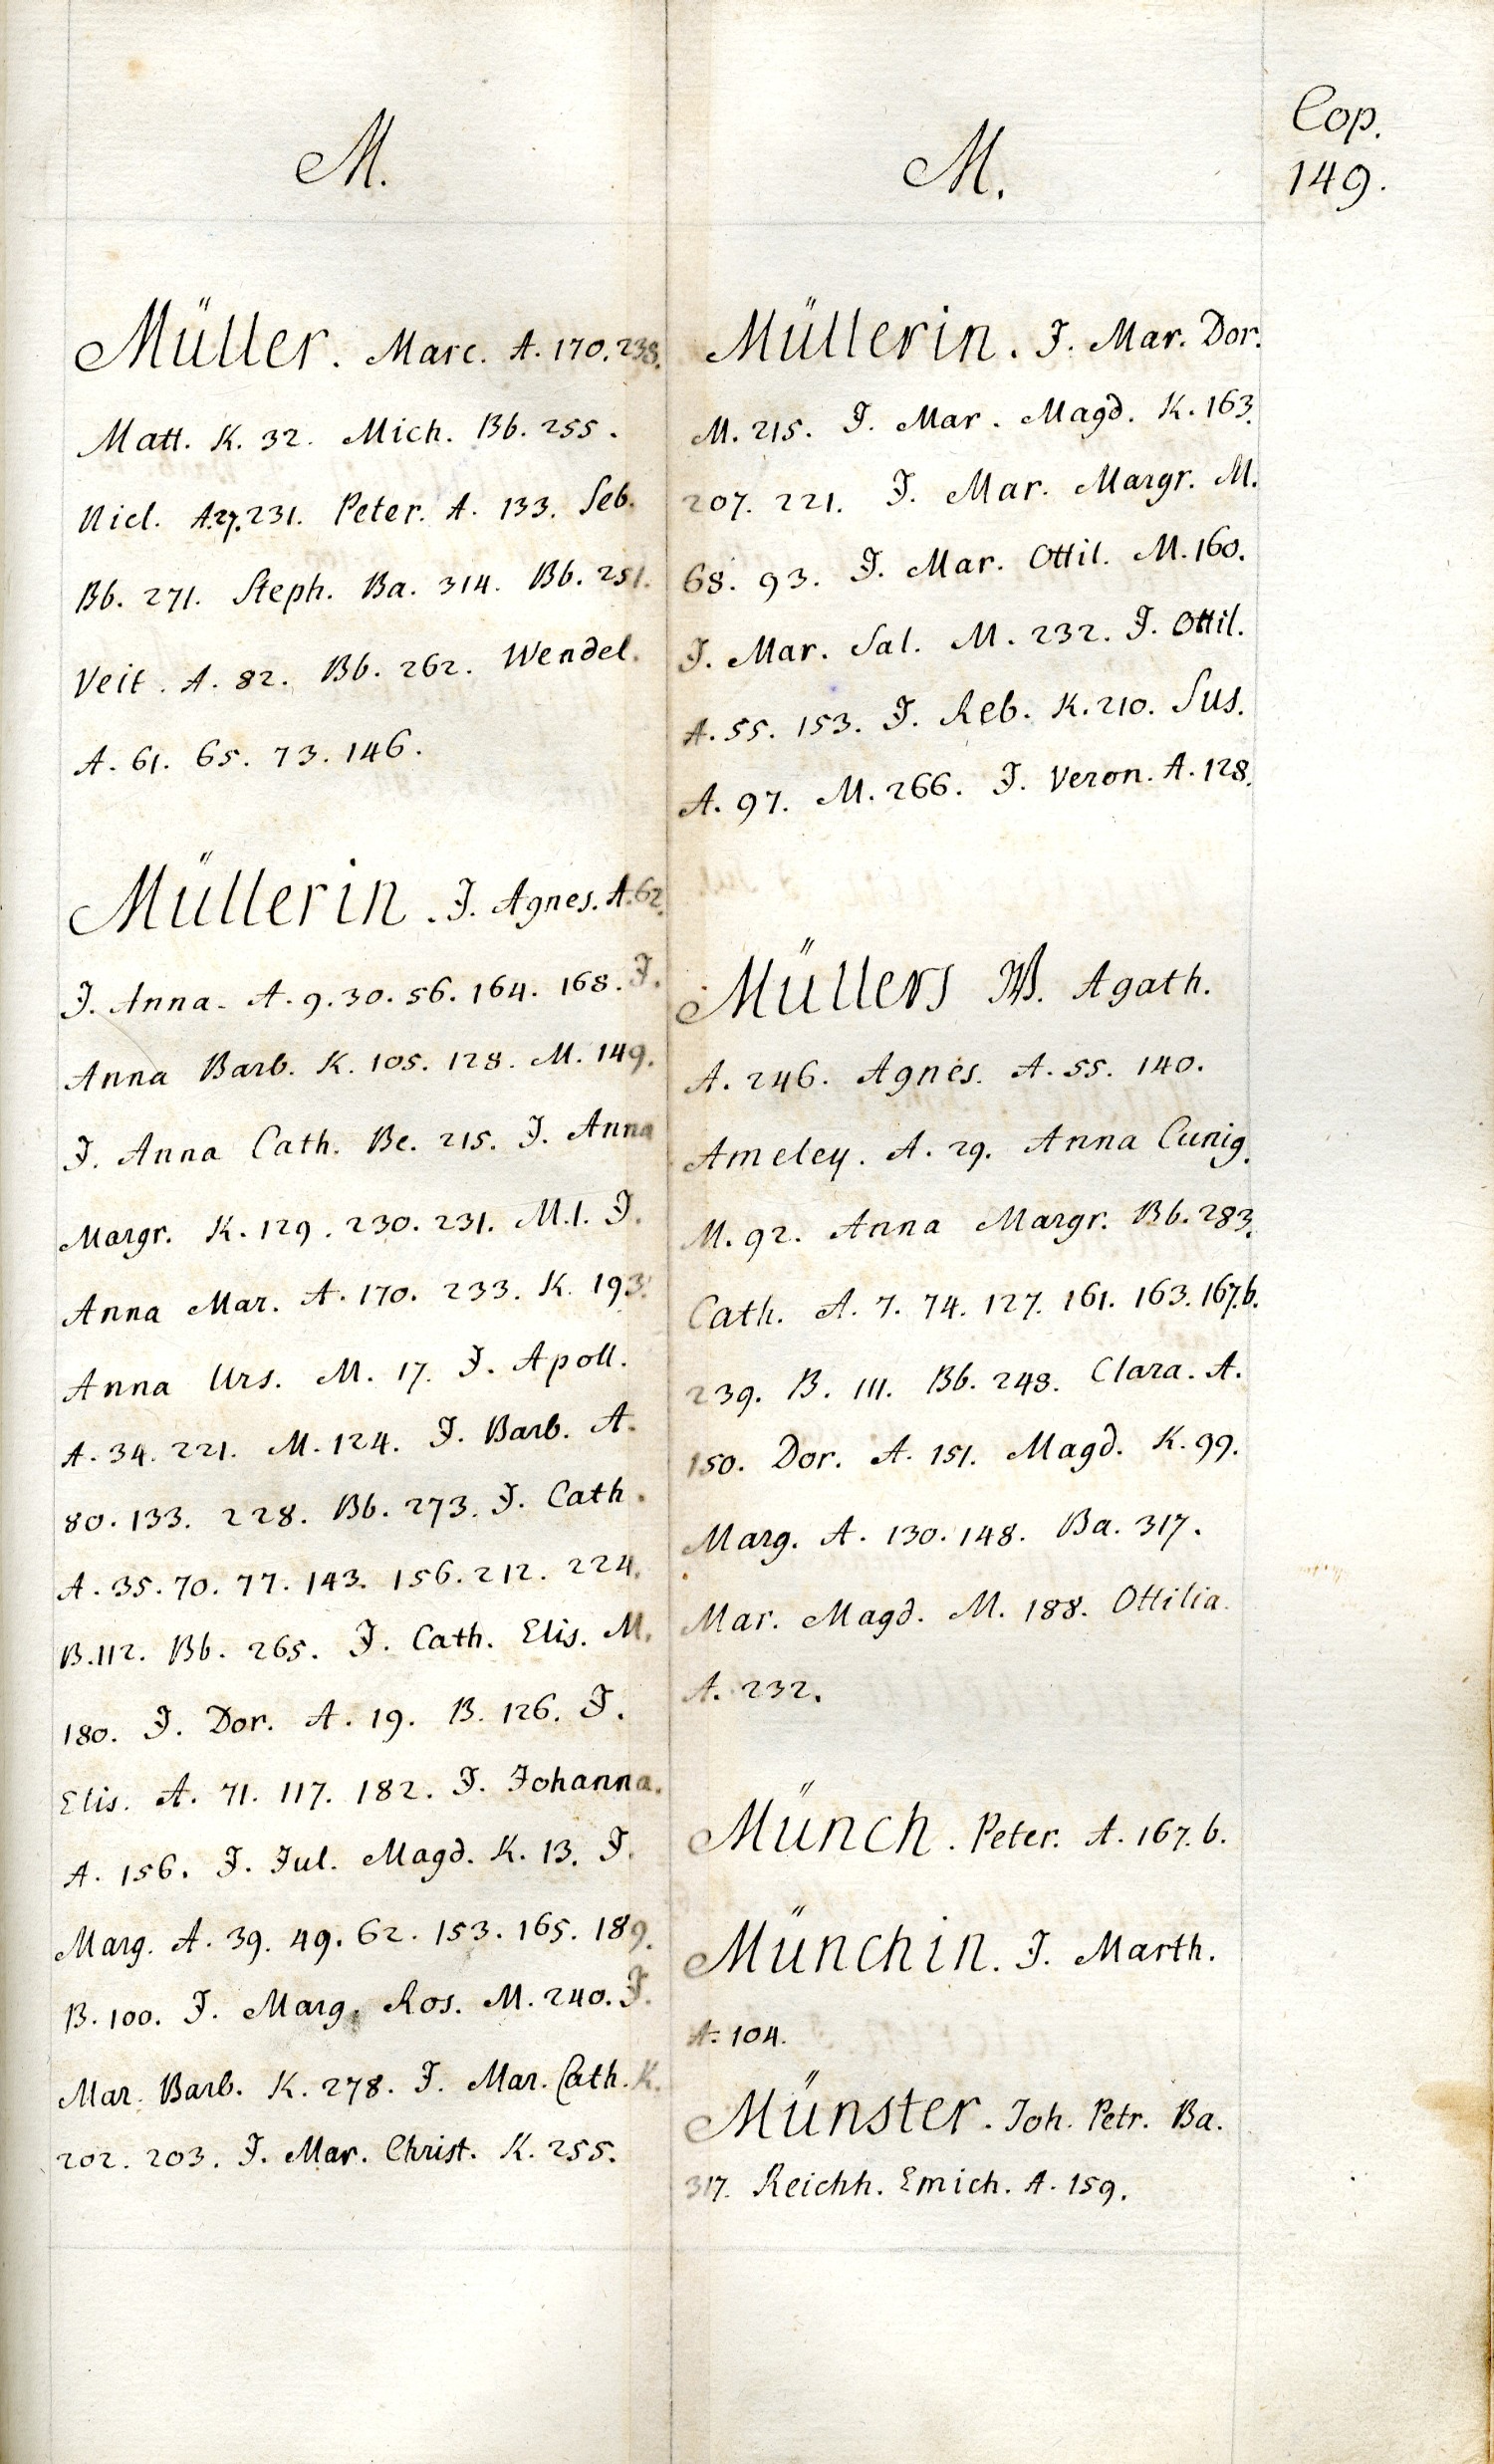 M.
Müller. Marc. A. 170. 238.
Matt. K. 32. Mich. Bb. 255.
Nicl. A. 27. 231. Peter. A. 133. Seb.
Bb. 271. Steph. Ba. 314. Bb. 251.
Veit. A. 82. Bb. 262. Wendel.
A. 61. 65. 73. 146.
Müllerin. J. Agnes. A. 62.
J. Anna. A. 9. 30. 56. 164. 168. J.
Anna Barb. K. 105. 128. M. 149.
J. Anna Cath. Be. 215. J. Anna
Margr. K. 129. 230. 231. M. 1. J.
Anna Mar. A. 170. 233. K. 193.
Anna Urs. M. 17. J. Apoll.
A. 34. 221. M. 124. J. Barb. A.
80. 133. 228. Bb. 273. J. Cath.
A. 35. 70. 77. 143. 156. 212. 224.
B. 112. Bb. 265. J. Cath. Elis. M.
180. J. Dor. A. 19. B. 126. J.
Elis. A. 71. 117. 182. J. Johanna.
A. 156. J. Jul. Magd. K. 13. J.
Marg. A. 39. 49. 62. 153. 165. 189.
B. 100. J. Marg. Ros. M. 240. J.
Mar. Barb. K. 278. J. Mar. Cath. K.
202. 203. J. Mar. Christ. K. 255.
M.
Müllerin. J. Mar. Dor.
M. 215. J. Mar. Magd. K. 163.
207. 221. J. Mar. Margr. M.
68. 93. J. Mar. Ottil. M. 160.
J. Mar. Sal. M. 232. J. Ottil.
A. 55. 153. J. Reb. K. 210. Sus.
A. 97. M. 266. J. Veron. A. 128.
Müllers W. Agath.
A. 246. Agnes. A. 55. 140.
Ameley. A. 29. Anna Cunig.
M. 92. Anna Margr. Bb. 283.
Cath. A. 7. 74. 127. 161. 163. 167.b.
239. B. 111. Bb. 248. Clara. A.
150. Dor. A. 151. Magd. K. 99.
Marg. A. 130. 148. Ba. 317.
Mar. Magd. M. 188. Ottilia.
A. 232.
Münch. Peter. A. 167. b.
Münchin. J. Marth.
A. 104.
Münster. Joh. Petr. Ba.
317. Reichh. Emich. A. 159.
Cop.
149.